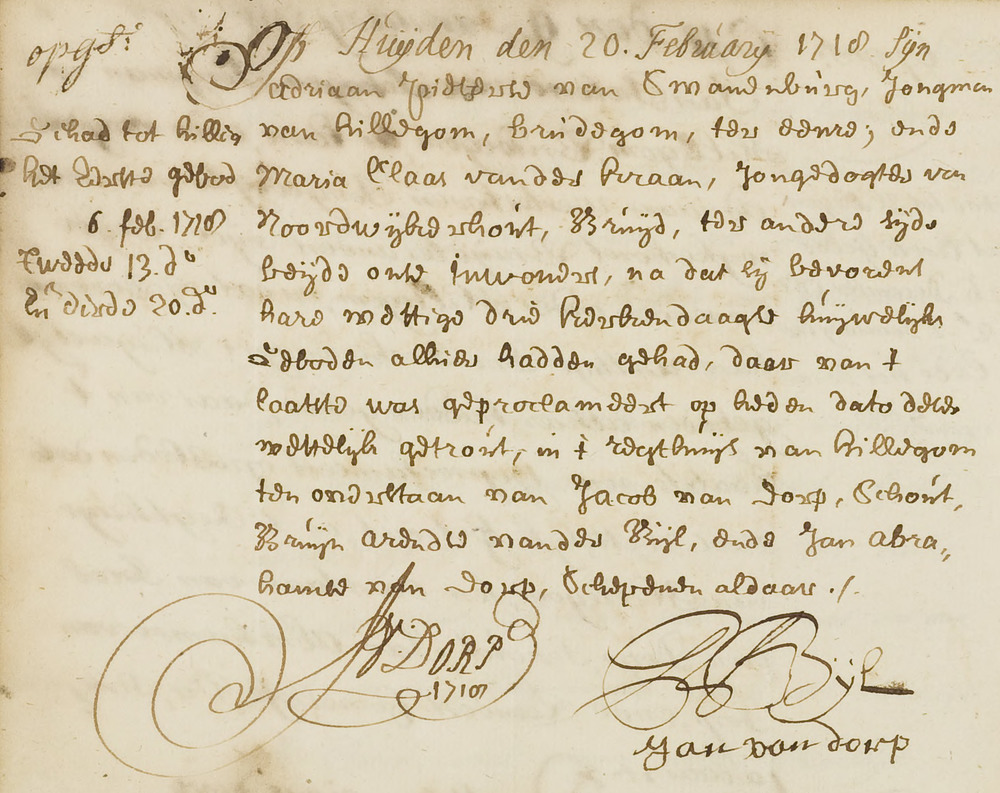 opgst:
Op Huijden den 20. February 1718 sijn
Adriaan Pieterse van Swanenburg, Jongman
van hillegom, brudegom, ter eenre; ende
Maria Claas vander kraan, Jongedogter van
Noordwijkerhout, Bruijd, ter andere sijde
beijde onse Inwoners, na dat sij bevorens
hare wettige drie kerkendaagse huijwelijks
Geboden alhier hadden gehad, daar van t
laatste was geproclameert op heden dato deser
wettelijk getrout, in t regthuijs van hillegom
ten overstaan van Jacob van Dorp, Schout,
Bruijn arendse vander Bijl, ende Jan abra„
hamse van Dorp, Schepenen aldaar ./.
Gehad tot hillig
het Eerste gebod
6. feb. 1718
tweede 13. do
En derde 20. do.
JV. DORP
1718
Bijl
Jan van dorp